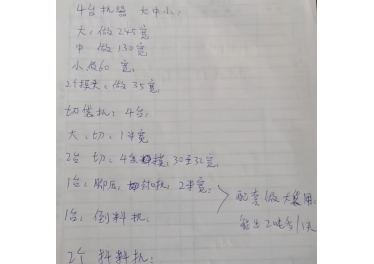 4台机器 大中小:
大:做245宽
中 做130宽
小 做60 宽
2个模头:做35宽
切袋机: 4台:
大:切:1米宽
2台 切:4条 30至32宽
1台:脚后,切 机,2米宽:
配套做大袋用:
1台:倒料机:
能出2吨多/1天
2个 拌料机: